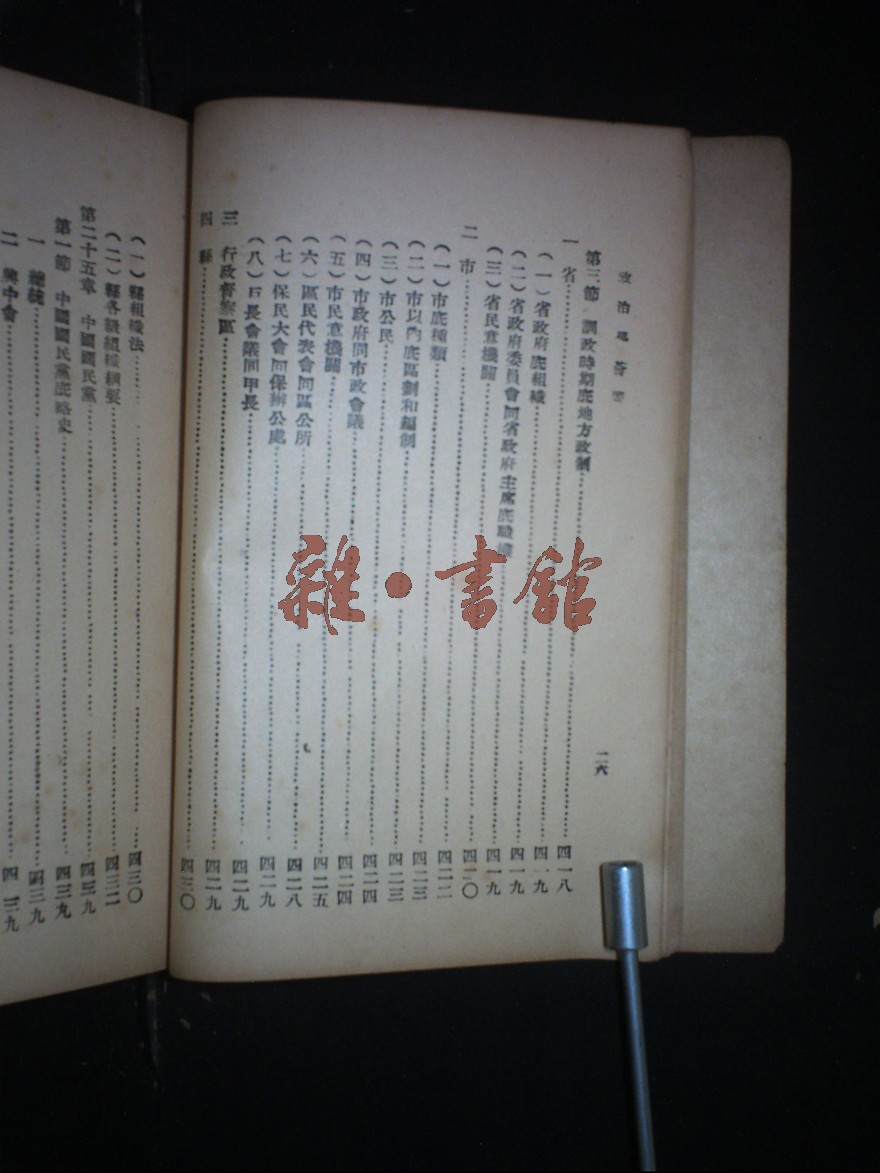 政治
二六
第三節 訓政時期底地方政制……四一八
一 省……四一九
(一)省政府底組織……四一九
(二)省政府委員會同省政府主席底職權……四一九
(三)省民意機關……四二〇
二 市……四二二
(一)市底種類……四二三
(二)市以內底區劃和編制……四二三
(三)市公民……四二四
(四)市政府同市政會議……四二四
(五)市民意機關……四二五
(六)區民代表會同區公所……四二八
(七)保民大會同保辦公處……四二九
(八)戶長會議同甲長……四二九
三 行政督察區……四二九
四 縣……四三〇
(一)縣組織法……四三〇
(二)縣各級組織綱要……四三二
第二十五章 中國國民黨……四三九
第一節 中國國民黨底略史……四三九
一 總……四三九
二 興中會……四三九
雜·書館